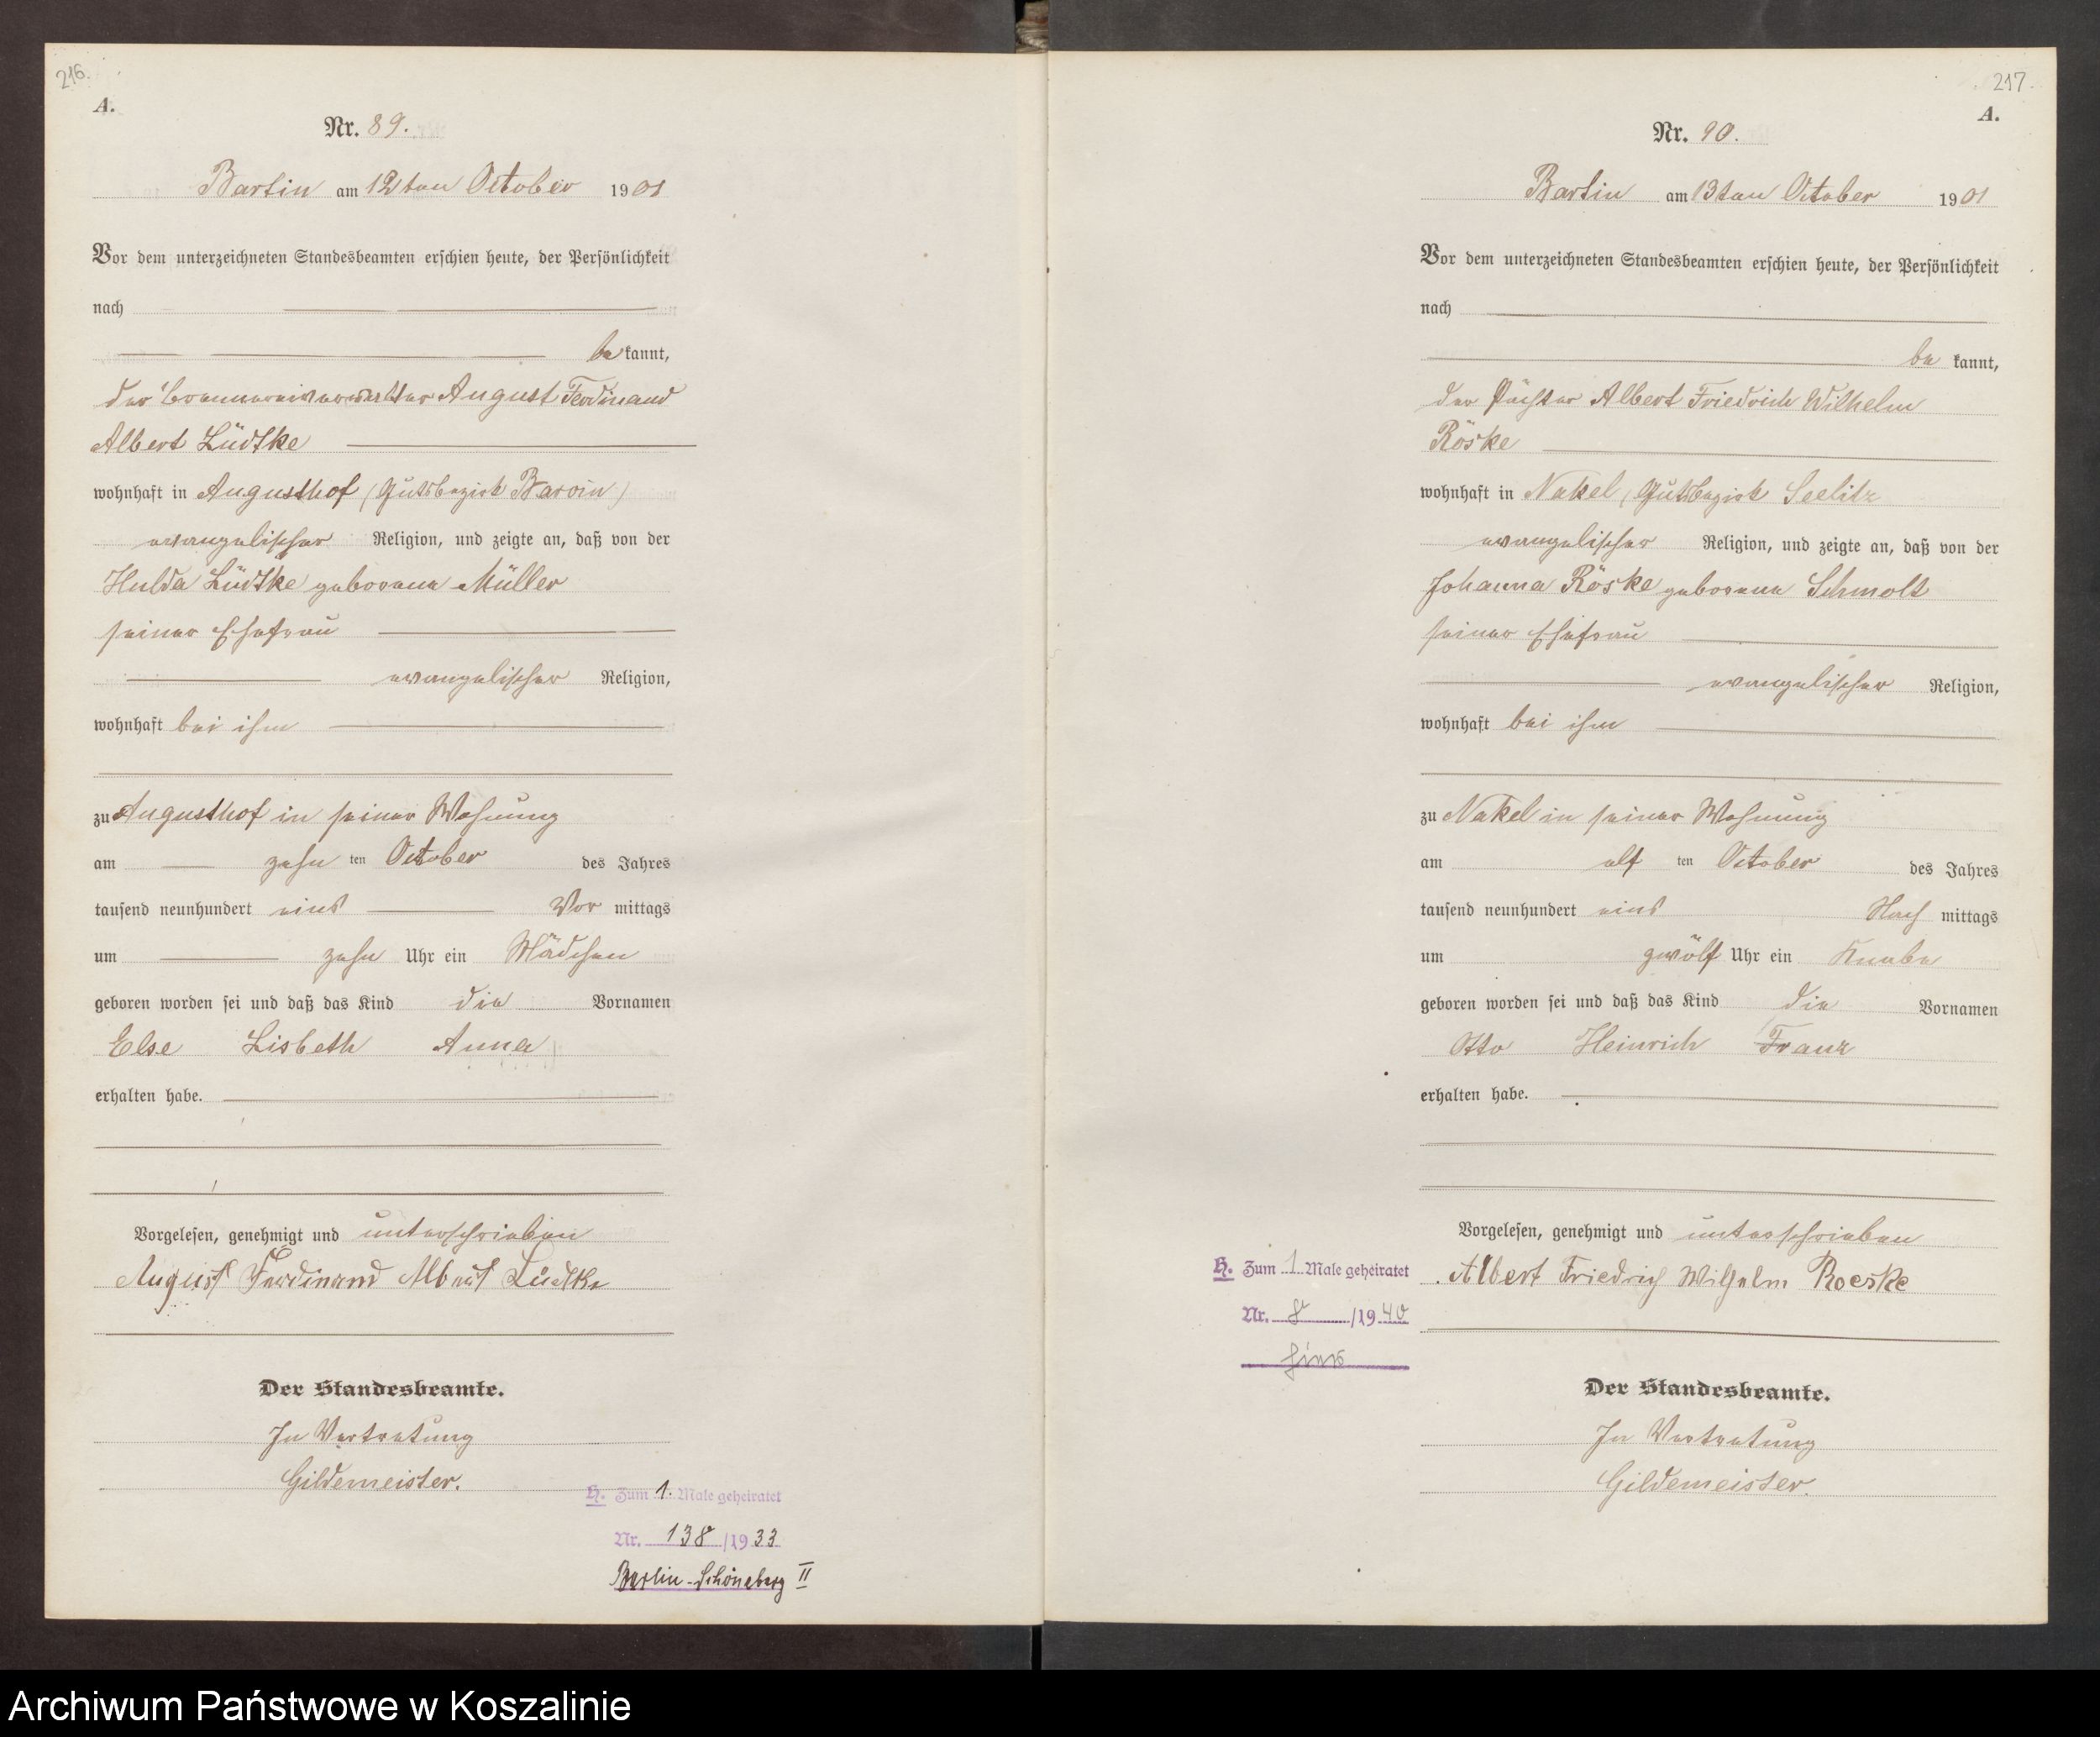 216.
A.
Nr. 89.
Bartin am 12ten October 1901
Vor dem unterzeichneten Standesbeamten erschien heute, der Persönlichkeit
nach
be kannt,
der Brennereiverwalter August Ferdinand
Albert Lüdtke
wohnhaft in Augusthof (Gutsbezirk Barvin)
evangelischer Religion, und zeigte an, daß von der
Hulda Lüdtke geborene Müller
seiner Ehefrau
evangelischer Religion,
wohnhaft bei ihm
zu Augusthof in seiner Wohnung
am zehn ten October des Jahres
tausend neunhundert eins Vor mittags
um zehn Uhr ein Mädchen
geboren worden sei und daß das Kind die Vornamen
Else Lisbeth Anna
erhalten habe.
Vorgelesen, genehmigt und unterschrieben
August Ferdinand Albert Lüdtke
Der Standesbeamte.
In Vertretung
Gildemeister.
H. Zum 1. Male geheiratet
Nr. 138/1933
Berlin-Schöneberg II
217.
A.
Nr. 90.
Bartin am 13ten October 1901
Vor dem unterzeichneten Standesbeamten erschien heute, der Persönlichkeit
nach
be kannt,
der Pächter Albert Friedrich Wilhelm
Röske
wohnhaft in Nakel, Gutsbezirk Seelitz
evangelischer Religion, und zeigte an, daß von der
Johanna Röske geborene Schmolt
seiner Ehefrau
evangelischer Religion,
wohnhaft bei ihm
zu Nakel in seiner Wohnung
am elf ten October des Jahres
tausend neunhundert eins Nach mittags
um zwölf Uhr ein Knabe
geboren worden sei und daß das Kind die Vornamen
Otto Heinrich Franz
erhalten habe.
Vorgelesen, genehmigt und unterschrieben
Albert Friedrich Wilhelm Roeske
H. Zum 1 Male geheiratet
Nr. 8/1940
hier
Der Standesbeamte.
In Vertretung
Gildemeister.
Archiwum Państwowe w Koszalinie